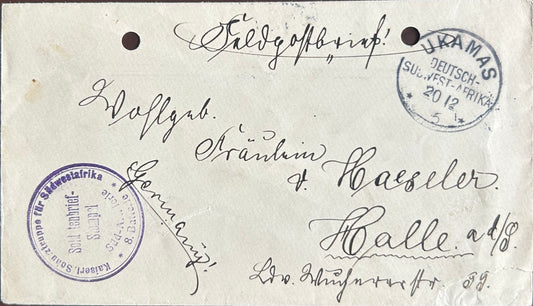 Feldpostbrief!
UKAMAS
DEUTSCH-
SÜDWEST-AFRIKA
20/2
5
Wohlgeb.
Fräulein
v. Haeseler.
Halle. a d/S.
Ldv. Wuchererstr. 99.
(Germany!)
Kaiserl. Schutztruppe für Südwestafrika
Soldatenbrief-
Stempel